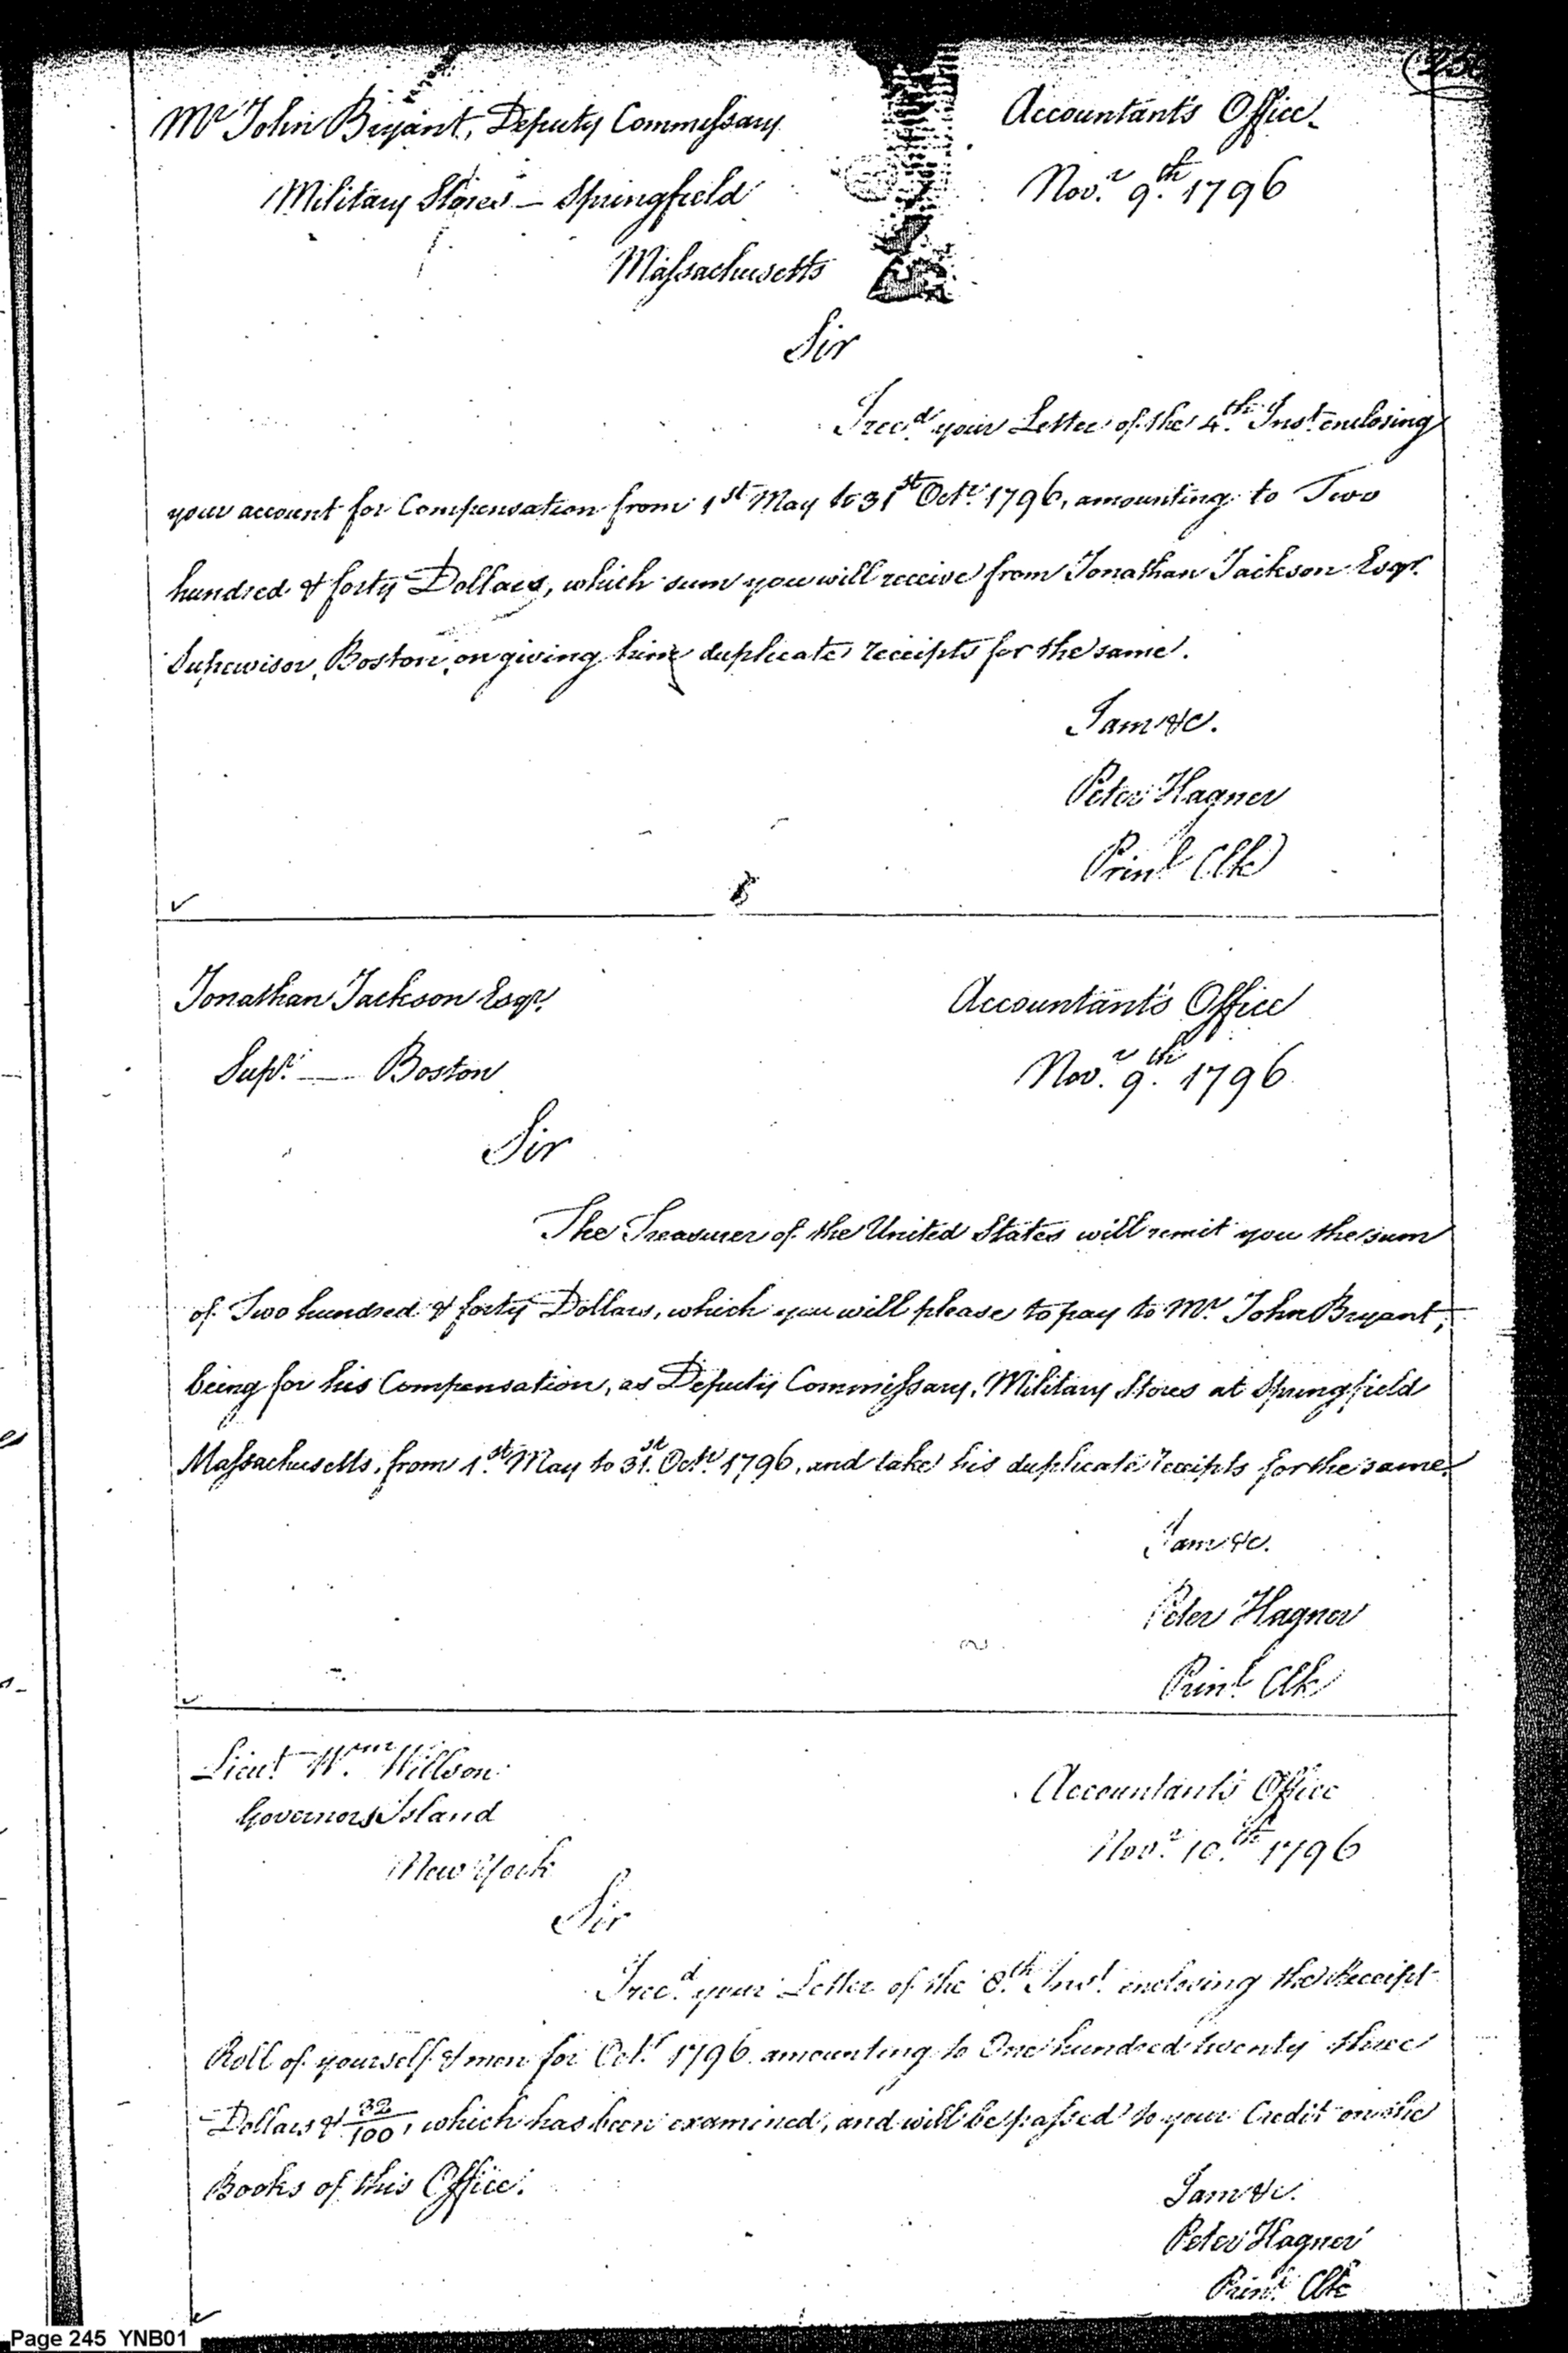 Mr John Bryant, Deputy Commissary
Military Stores – Springfield
Massachusetts
Accountant's Office
Novr. 9th. 1796
Sir
I recd. your Letter of the 4th. Inst. enclosing
your account for Compensation from 1st May to 31st Octr. 1796, amounting to Two
hundred & forty Dollars, which sum you will receive from Jonathan Jackson Esqr.
Supervisor, Boston, on giving him duplicate receipts for the same.
I am &c.
Peter Hagner
Prinl Clk
Jonathan Jackson Esqr.
Supr. — Boston
Accountant's Office
Novr. 9th. 1796
Sir
The Treasurer of the United States will remit you the sum
of Two hundred & forty Dollars, which you will please to pay to Mr. John Bryant,
being for his Compensation, as Deputy Commissary, Military Stores at Springfield
Massachusetts, from 1st. May to 31st. Octr. 1796, and take his duplicate receipts for the same.
I am &c.
Peter Hagner
Prinl Clk
Lieut Wm. Willson
Governors Island
New York
Accountant's Office
Novr. 10th. 1796
Sir
I recd. your Letter of the 8th. Inst. enclosing the Receipt
Roll of yourself & men for Octr. 1796 amounting to One hundred twenty three
Dollars & 32/100, which has been examined, and will be passed to your Credit on the
Books of this Office.
I am &c.
Peter Hagner
Prinl. Clk
Page 245 YNB01